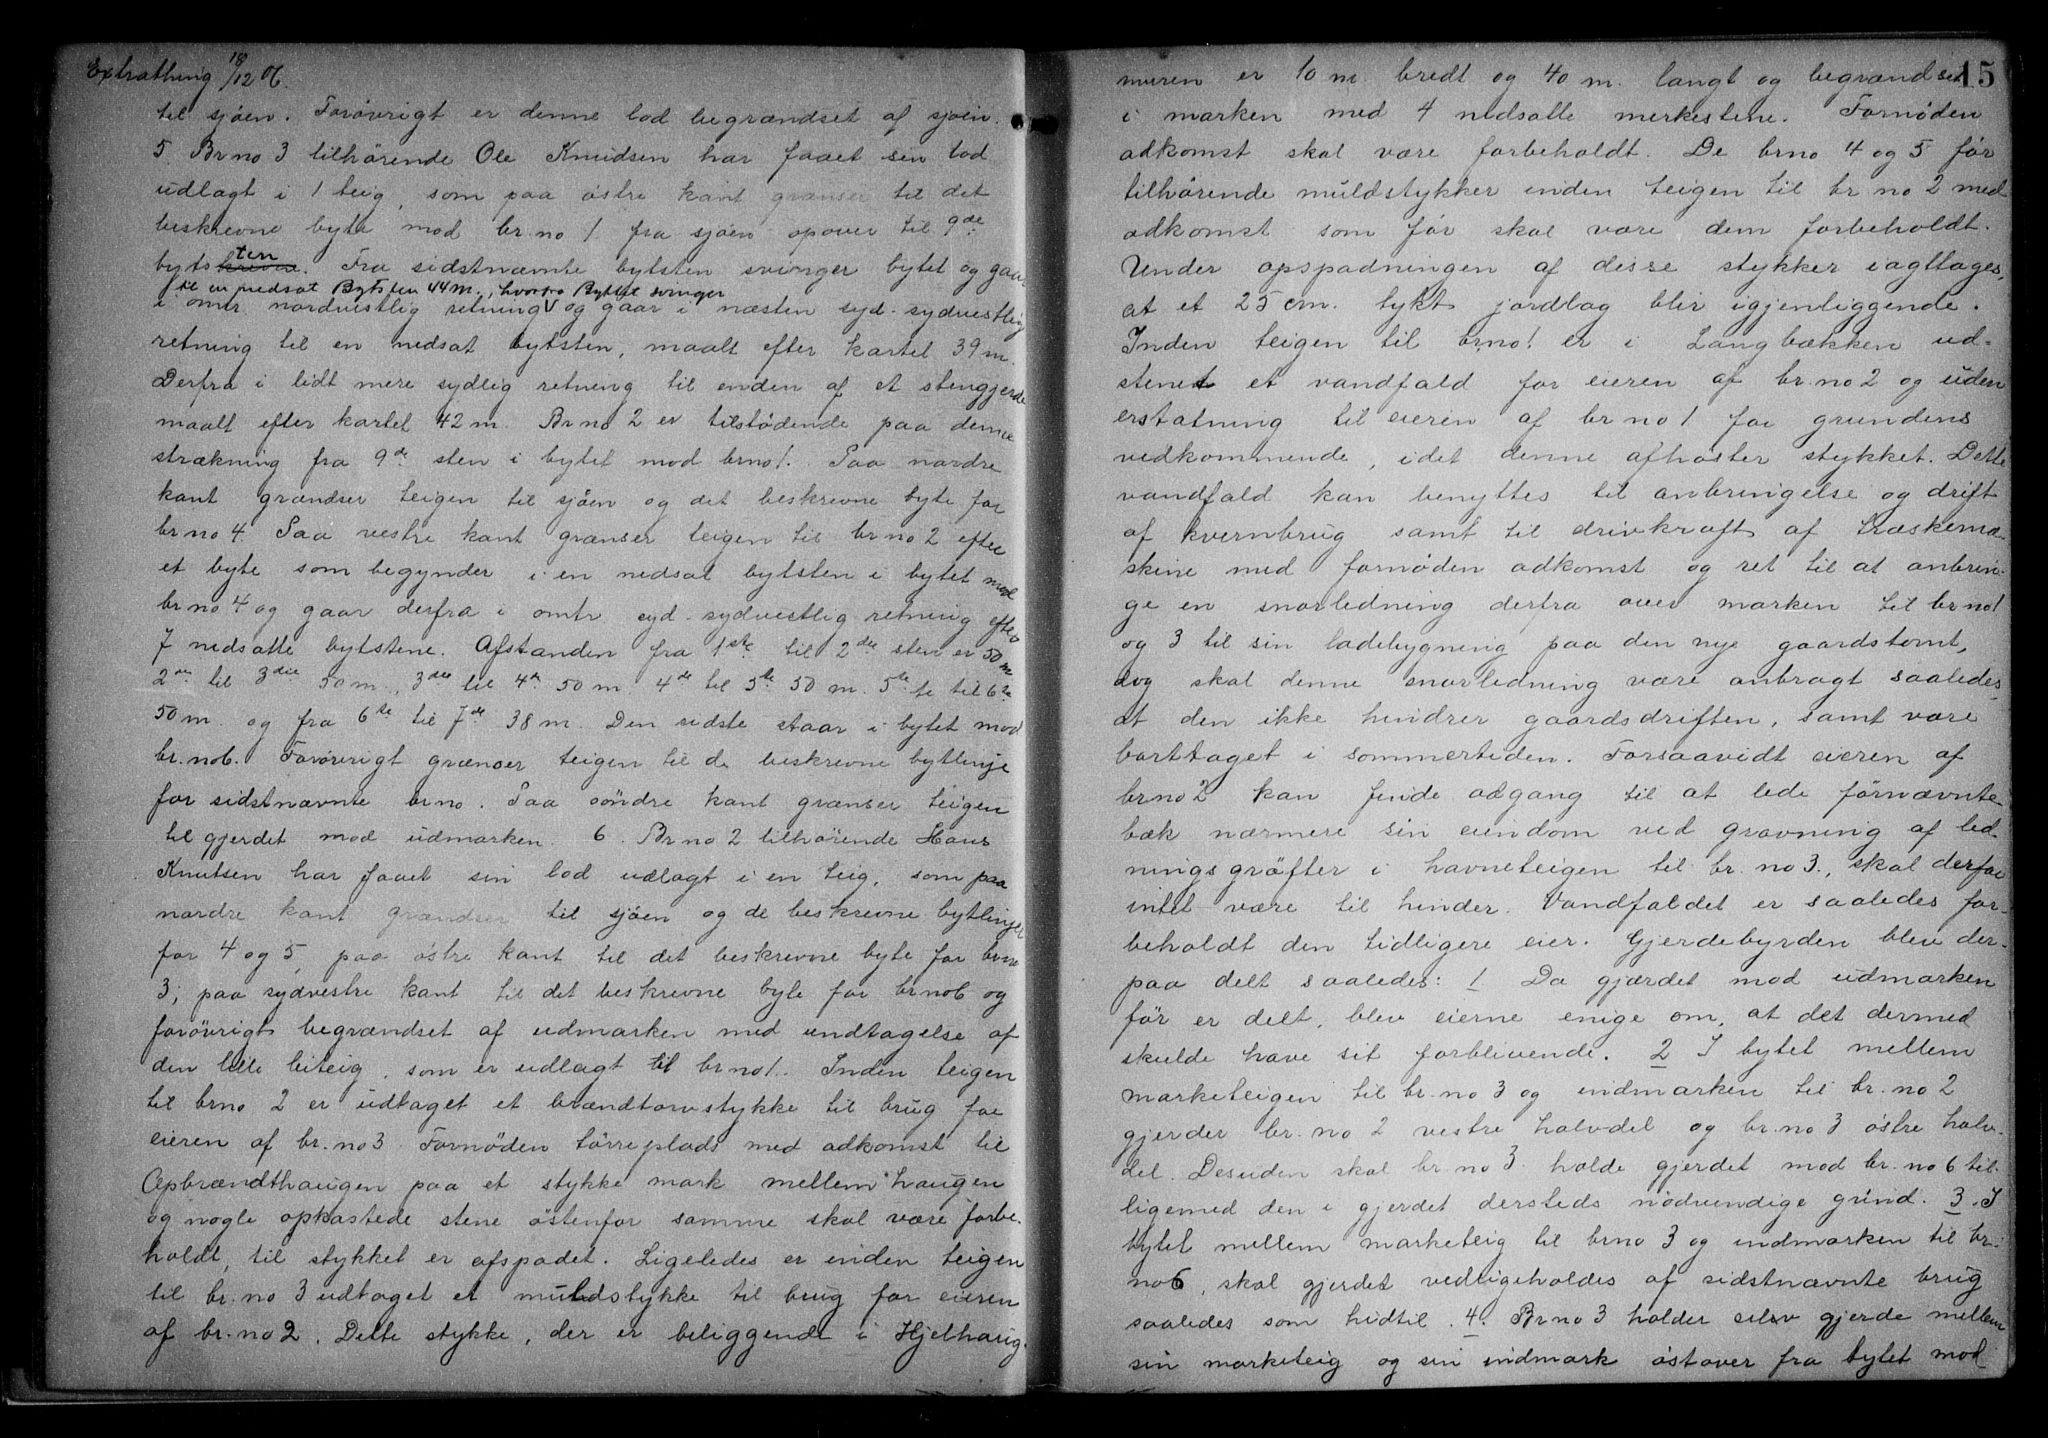 Extrathing 18/12 06.
til sjøen. Forøvrigt er denne lod begrændset af sjøen.
5. Br no 3 tilhørende Ole Knudsen har faaet sin lod
udlagt i 1 teig, som paa østre kant grænser til det
beskrevne byte mod br. no 1 fra sjøen opover til 9de
bytsten. Fra sidstnæmte bytsten svinger bytet og gaar
til en nedsat Bytsten 44 m., hvorfra Byttet svinger
i omtr nordvestlig retning V og gaar i næsten syd-sydvestlig
retning til en nedsat bytsten, maalt efter kartet 39 m.
Derfra i lidt mere sydlig retning til enden af et stengjerde
maalt efter kartet 42 m. Br no 2 er tilstødende paa denne
strækning fra 9de sten i bytet mod br no 1. Paa nordre
kant grændser teigen til sjøen og det beskrevne byte for
br no 4. Paa vestre kant grænser teigen til br no 2 efter
et byte som begynder i en nedsat bytsten i bytet mod
br no 4 og gaar derfra i omtr syd-sydvestlig retning efter
7 nedsatte bytstene. Afstanden fra 1ste til 2den sten er 50 m
2den til 3die 50 m., 3die til 4de 50 m. 4de til 5te 50 m. 5te til 6te
50 m. og fra 6te til 7de 38 m. Den sidste staar i bytet mod
br. no 6. Forøvrigt grænser teigen til de beskrevne bytlinje
for sidstnævnte br no. Paa søndre kant grænser teigen
til gjerdet mod udmarken. 6. Br no 2 tilhørende Hans
Knutsen har faaet sin lod udlagt i en teig, som paa
nordre kant grændser til sjøen og de beskrevne bytlinjer
for 4 og 5, paa østre kant til det beskrevne byte for br no
3, paa sydvestre kant til det beskrevne byte for br no 6 og
forøvrigt begrændset af udmarken med undtagelse af
den lille biteig, som er udlagt til br no 1. Inden teigen
til br no 2 er udtaget et brændtorvstykke til brug for
eieren af br. no 3. Fornøden tørreplads med adkomst til
Opbrændthaugen paa et stykke mark mellem haugen
og nogle opkastede stene østenfor samme skal være forbe-
holdt, til stykket er afspadet. Ligeledes er inden teigen
til br. no 3 udtaget et muldstykke til brug for eieren
af br. no 2. Dette stykke, der er beliggende i Hjelhaug-
15
muren er 10 m. bredt og 40 m. langt og begrændset
i marken med 4 nedsatte merkestene. Fornøden
adkomst skal være forbeholdt. De br no 4 og 5 før
tilhørende muldstykker inden teigen til br no 2 med
adkomst som før skal være dem forbeholdt.
Under opspadningen af disse stykker iagttages,
at et 25 cm. tykt jordlag blir igjenliggende.
Inden teigen til br no 1 er i Langbækken ud-
stenet et vandfald for eieren af br. no 2 og uden
erstatning til eieren af br no 1 for grundens
vedkommende, idet denne afhøster stykket. Dette
vandfald kan benyttes til anbringelse og drift
af kvernbrug samt til drivkraft af træskema-
skine med fornøden adkomst og ret til at anbrin-
ge en snorledning derfra over marken til br no 1
og 3 til sin ladebygning paa den nye gaardstomt,
dog skal denne snorledning være anbragt saaledes
at den ikke hindrer gaardsdriften, samt være
borttaget i sommertiden. Forsaavidt eieren af
br no 2 kan finde adgang til at lede førnævnte
bæk nærmere sin eiendom ved gravning af led-
ningsgrøfter i havneteigen til br. no 3, skal derfor
intet være til hinder. Vandfaldet er saaledes for-
beholdt den tidligere eier. Gjerdebyrden blev der-
paa delt saaledes: 1 Da gjærdet mod udmarken
før er delt, blev eierne enige om, at det dermed
skulde have sit forblivende. 2 I bytet mellem
marketeigen til br. no 3 og indmarken til br. no 2
gjerder br. no 2 vestre halvdel og br. no 3 østre halv-
del. Desuden skal br. no 3 holde gjerdet mod br. no 6 til-
ligemed den i gjerdet dersteds nødvendige grind. 3. I
bytet mellem marketeig til br no 3 og indmarken til br.
no 6, skal gjerdet vedligeholdes af sidstnævnte brug
saaledes som hidtil. 4. Br no 3 holder selv gjerde mellem
sin marketeig og sin indmark østover fra bytet mod